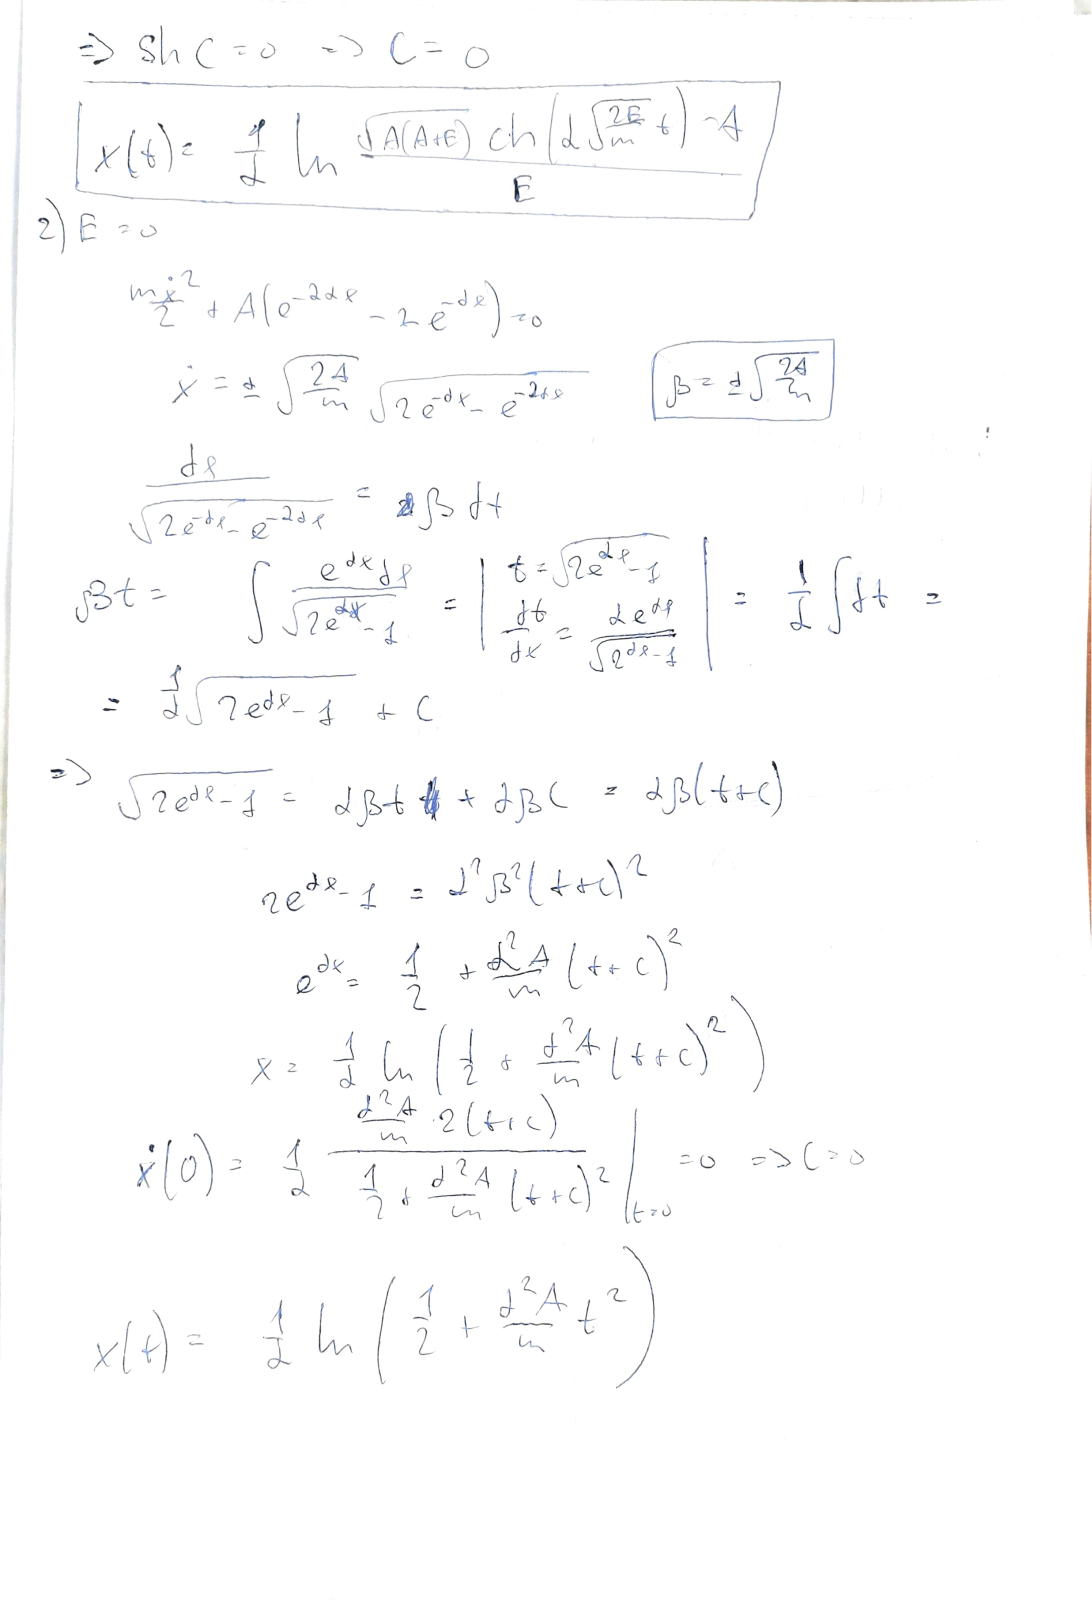 => sh C = 0 => C = 0
x(t) = 1/α ln (√(A(A+E)) ch(α√(2E/m) t) - A)/E
2) E = 0
mẋ²/2 + A(e^(-2αx) - 2e^(-αx)) = 0
ẋ = ± √(2A/m) √(2e^(-αx) - e^(-2αx)) β = ±√(2A/m)
dx/√(2e^(-αx) - e^(-2αx)) = β dt
βt = ∫ e^(αx)dx/√(2e^(αx) - 1) = | t = √(2e^(αx) - 1) dt/dx = αe^(αx)/√(2^(αx) - 1) | = 1/α ∫dt =
= 1/α √(2e^(αx) - 1) + C
=> √(2e^(αx) - 1) = αβt + αβC = αβ(t+C)
2e^(αx) - 1 = α²β²(t+C)²
e^(αx) = 1/2 + α²A/m (t+C)²
x = 1/α ln(1/2 + α²A/m (t+C)²)
ẋ(0) = 1/α (α²A/m · 2(t+C))/(1/2 + α²A/m (t+C)²) |t=0 = 0 => C = 0
x(t) = 1/α ln(1/2 + α²A/m t²)